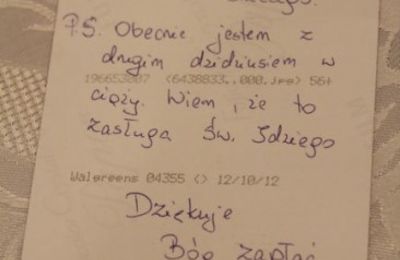 P.S. Obecnie jestem z
drugim dzidziusiem w
196653007 (6438833..000.jpg) 56+
ciąży. Wiem, że to
zasługa Św. Idziego
Walgreens 04355 <> 12/10/12
Dziękuje
Bóg zapłać